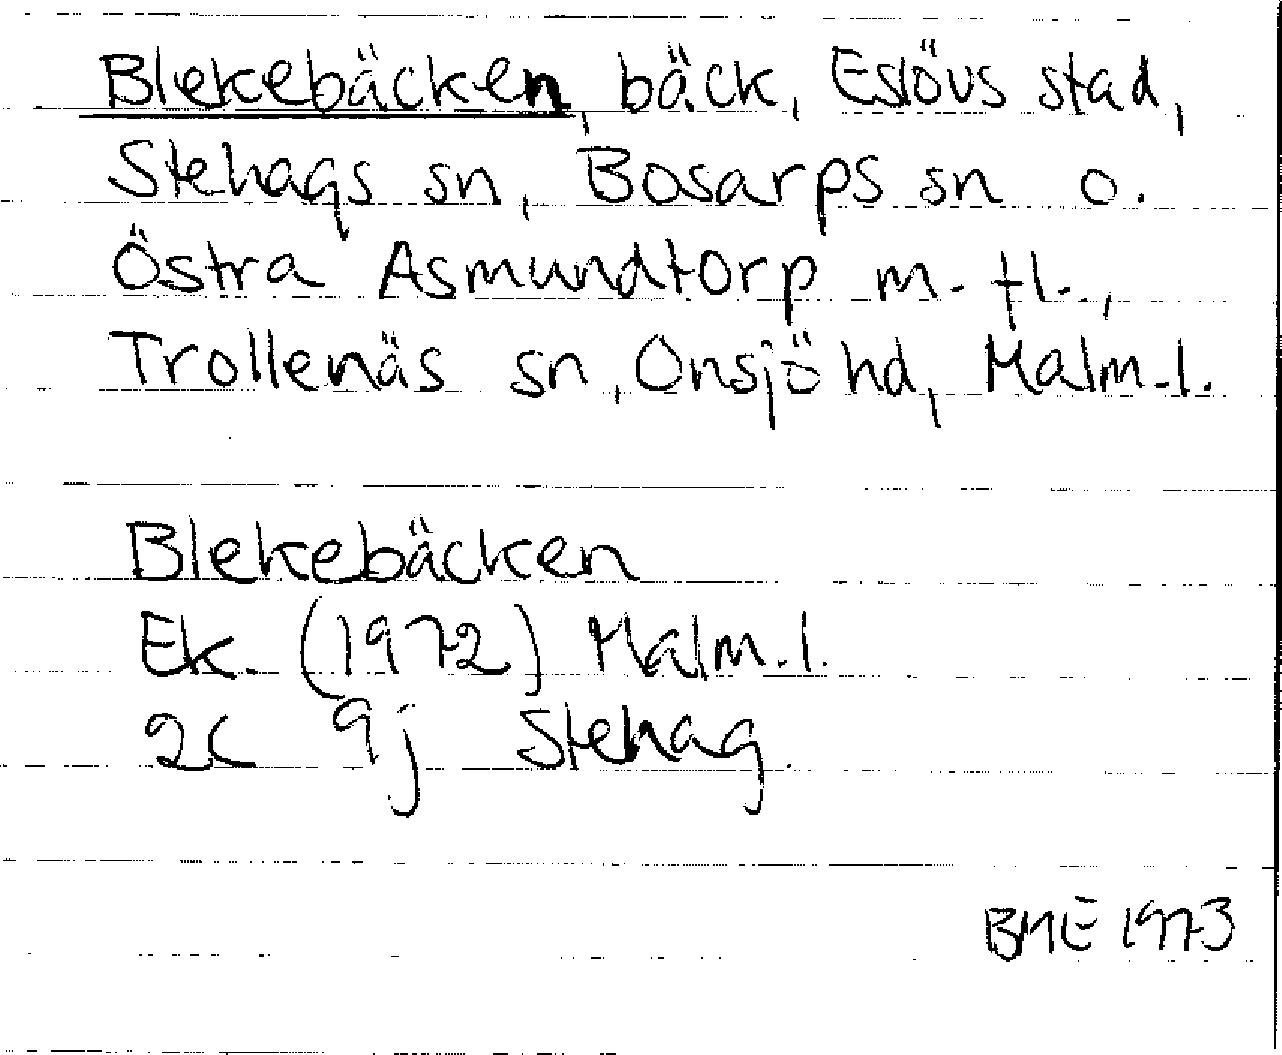 Blekebäcken, bäck, Eslövs stad,
Stehags sn, Bosarps sn o.
Östra Asmundtorp m. fl.,
Trollenäs sn, Onsjö hd, Malm.l.
Blekebäcken
Ek. (1972) Malm.l.
2C 9j Stehag
BME 1973